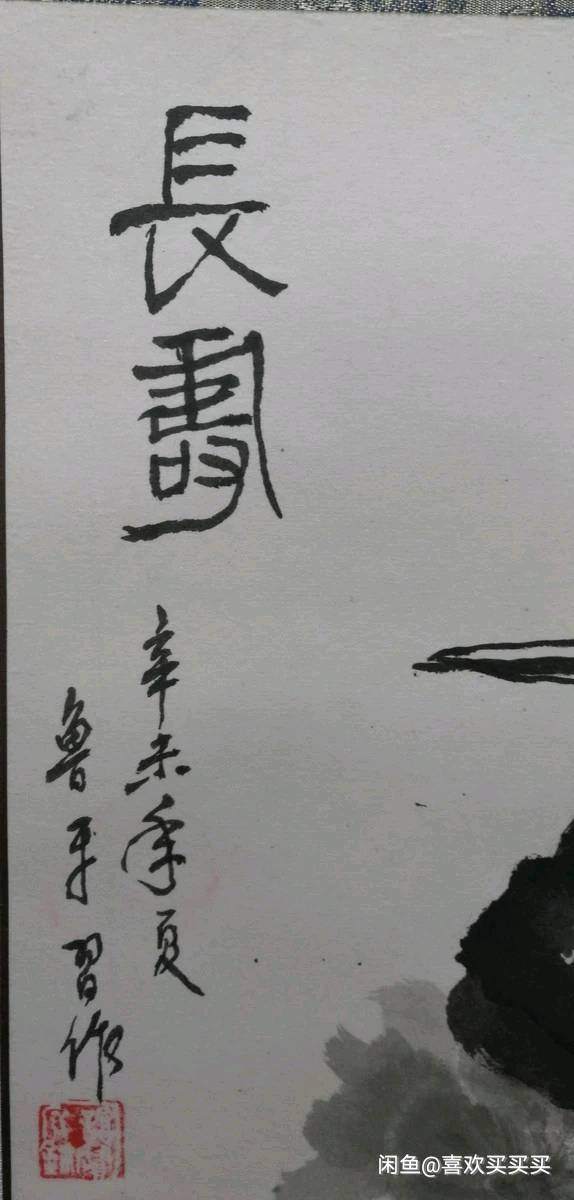 長壽
辛未年夏
鲁平習作
闲鱼@喜欢买买买